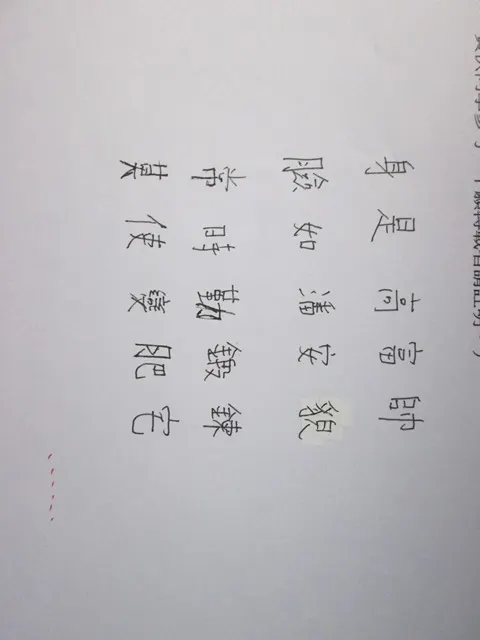 身是高富帥
臉如潘安貌
常時勤鍛鍊
莫使變肥宅